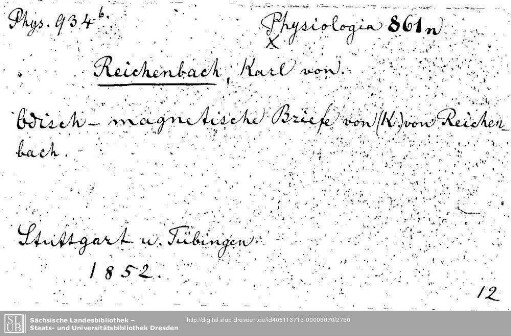 Phys. 934b. Physiologia 861n
Reichenbach, Karl von.
Odisch-magnetische Briefe von (K.) von Reichen-
bach.
Stuttgart u. Tübingen
1852.
12
Sächsische Landesbibliothek –
Staats- und Universitätsbibliothek Dresden